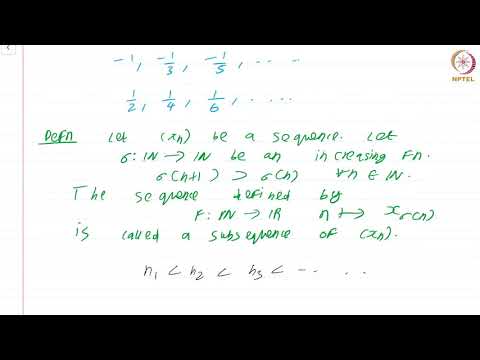 -1, -1/3, -1/5, .... ..
1/2, 1/4, 1/6, .. ...
NPTEL
Defn Let (xn) be a sequence. Let
σ: IN → IN be an increasing Fn.
σ(n+1) > σ(n) ∀n ∈ IN.
The sequence defined by
F: IN → IR n ↦ xσ(n)
is called a subsequence of (xn).
n1 < n2 < n3 < -- .. ..